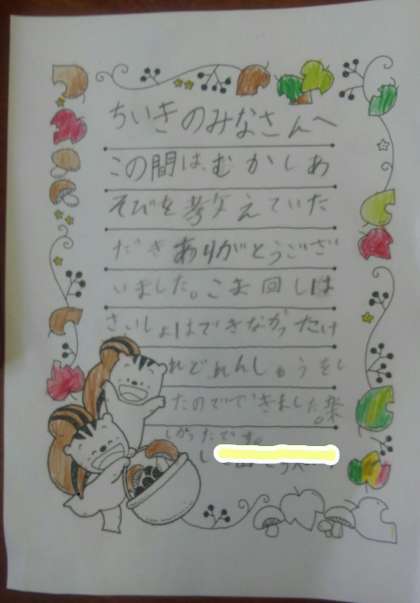 ちいきのみなさんへ
この間は、むかしあ
そびを教えていた
だきありがとうござ
いました。こま回しは
さいしょはできなかったけ
れどれんしゅうをし
たのでできました。楽
しかったです